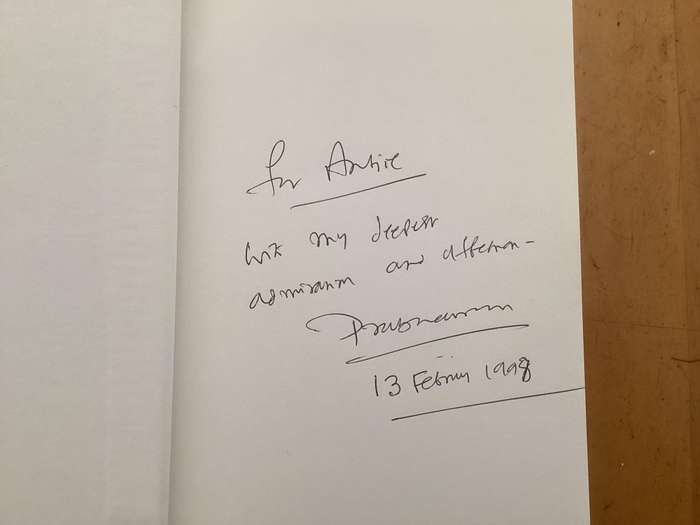 For
with my deepest
admiration and affection -
13 February 1998